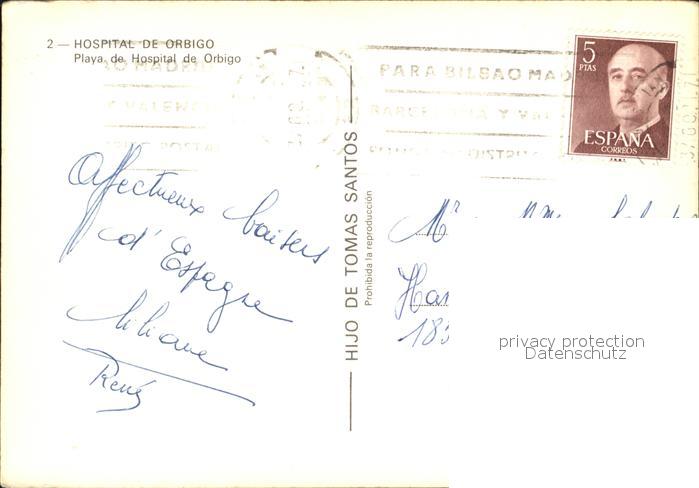 2 — HOSPITAL DE ORBIGO
Playa de Hospital de Orbigo
PARA BILBAO MAD
BARCELONA Y VAL
5
PTAS
ESPAÑA
CORREOS
Affectueux baisers
d'Espagne
Liliane
René
HIJO DE TOMAS SANTOS
Prohibida la reproducción
Mr
Har
183
privacy protection
Datenschutz